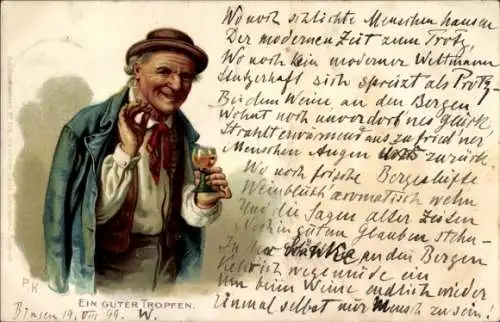 Wo noch schlichte Menschen hausen
Der modernen Zeit zum Trotz,
Wo noch kein moderner Weltmann
Stutzerhaft sich spreizt als Protz
Bei dem Weine, an den Bergen
Wohnt noch unverdorb'nes Glück,
Strahlt erwärmend aus zufried'ner
Menschen Augen zurück
Wo noch frische Bergeshüfte
Weinblüth' aromatisch wehn
Und die Sagen alter Zeiten
Noch in guten Glauben stehn
In der an den Bergen
Kehr' ich wegemüde ein
Um beim Weine endlich wieder
Einmal selbst nur Mensch zu sein.
PK
EIN GUTER TROPFEN.
Bingen 19. VIII 99. W.